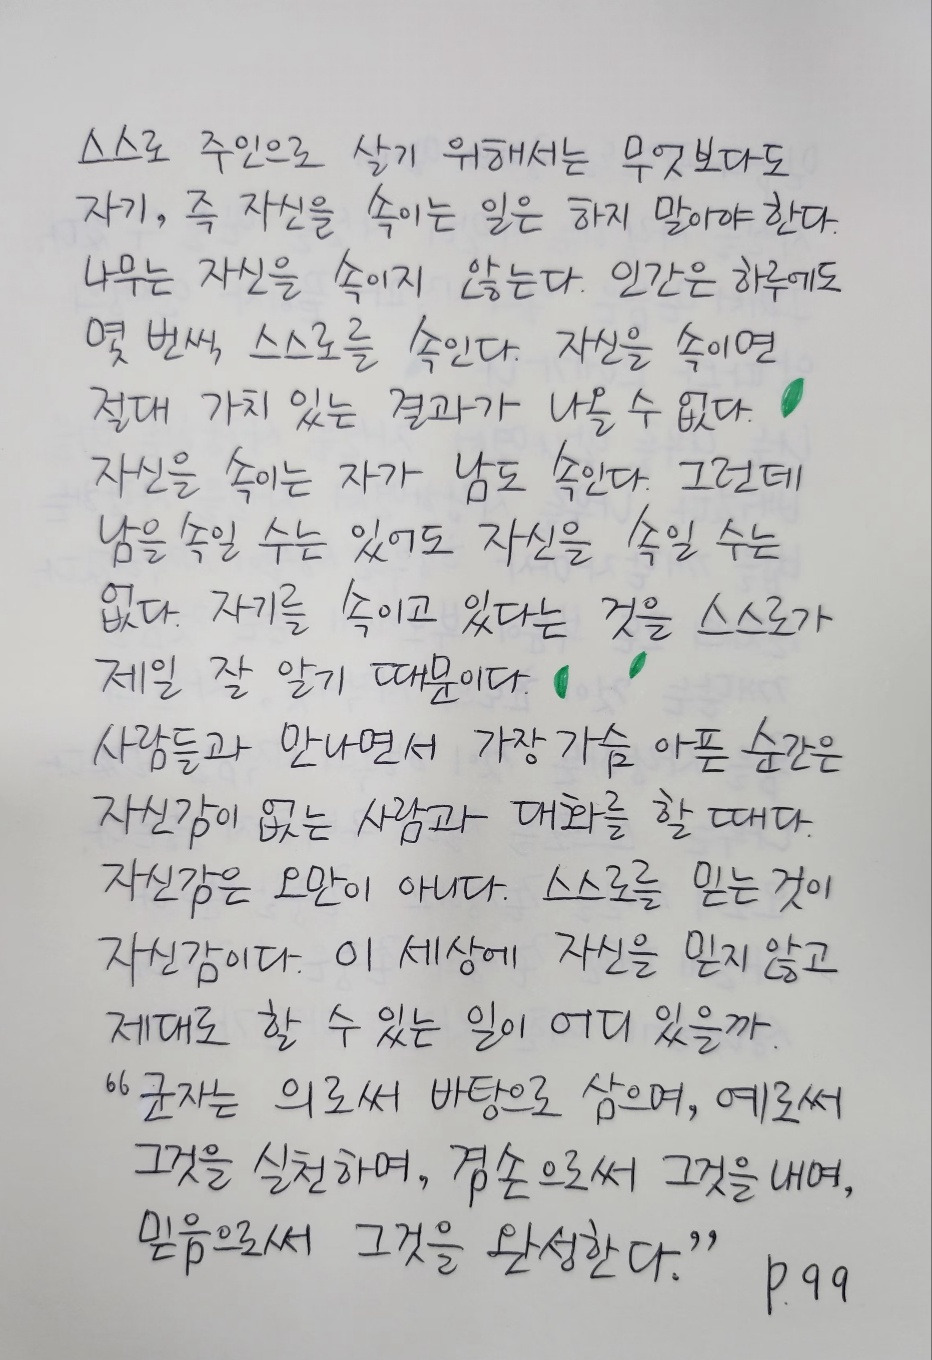 스스로 주인으로 살기 위해서는 무엇보다도
자기, 즉 자신을 속이는 일은 하지 말아야 한다.
나무는 자신을 속이지 않는다. 인간은 하루에도
몇 번씩 스스로를 속인다. 자신을 속이면
절대 가치 있는 결과가 나올 수 없다.
자신을 속이는 자가 남도 속인다. 그런데
남을 속일 수는 있어도 자신을 속일 수는
없다. 자기를 속이고 있다는 것을 스스로가
제일 잘 알기 때문이다.
사람들과 만나면서 가장 가슴 아픈 순간은
자신감이 없는 사람과 대화를 할 때다.
자신감은 오만이 아니다. 스스로를 믿는 것이
자신감이다. 이 세상에 자신을 믿지 않고
제대로 할 수 있는 일이 어디 있을까.
“군자는 의로써 바탕으로 삼으며, 예로써
그것을 실천하며, 겸손으로써 그것을 내며,
믿음으로써 그것을 완성한다.”
p.99